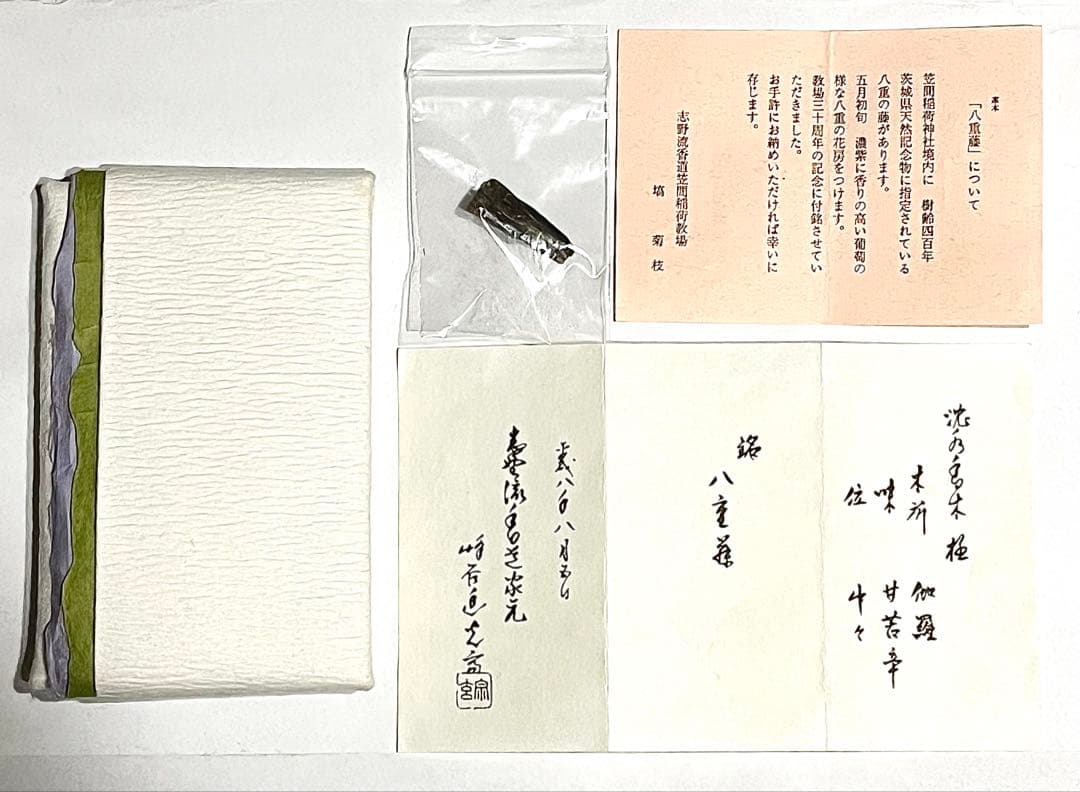 香木
「八重藤」について
笠間稲荷神社境内に　樹齢四百年
茨城県天然記念物に指定されている
八重の藤があります。
五月初旬　濃紫に香りの高い葡萄の
様な八重の花房をつけます。
教場三十周年の記念に付銘させてい
ただきました。
お手許にお納めいただければ幸いに
存じます。
志野流香道笠間稲荷教場
塙　菊枝
沈水香木 極
木所　伽羅
味　甘苦辛
位　中々
銘
八重藤
平成八年八月五日
志野流香道家元
蜂谷